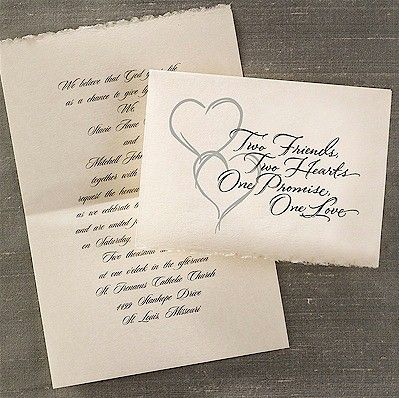 We believe that God life
as a chance to give
We,
Stacie Anne
and
Mitchell John
together with
request the honou
as we celebrate
and are united
on Saturday,
Two thousand
at one o'clock in the afternoon
St. Irenaeus Catholic Church
1499 Stanhope Drive
St. Louis, Missouri
Two Friends,
Two Hearts
One Promise,
One Love